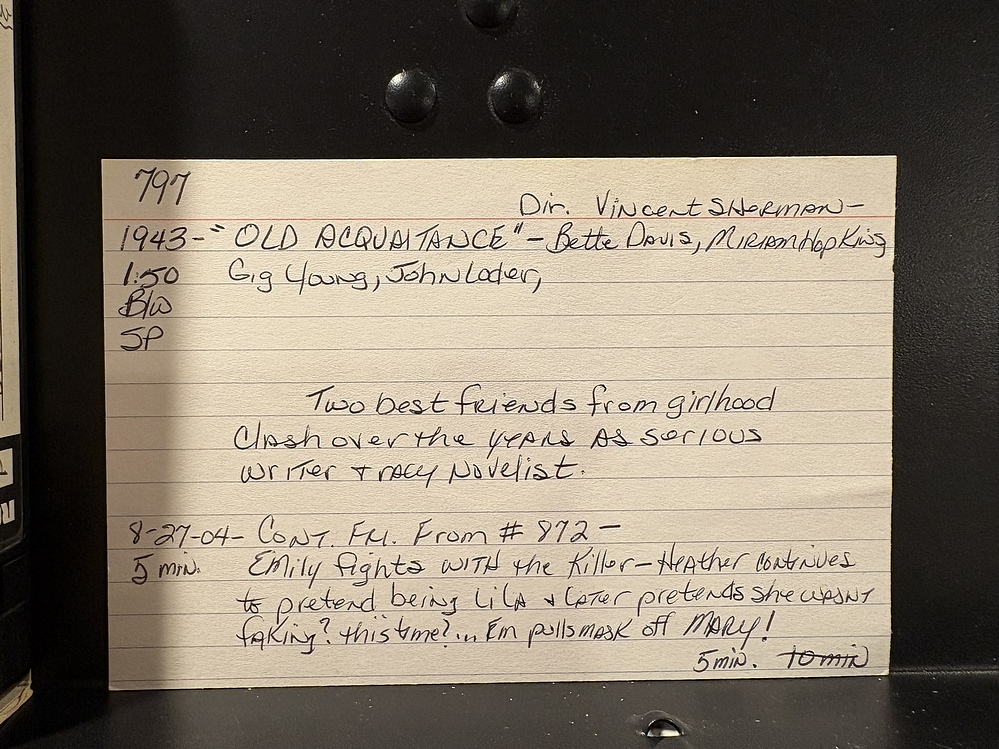 797
Dir. Vincent Sherman-
1943-"OLD ACQUAITANCE"- Bette Davis, Miriam Hopking
1:50 Gig Young, John Loder,
B/W
SP
Two best friends from girlhood
Clash over the years as serious
writer + racy novelist.
8-27-04- Cont. Fri. From # 872-
5 min. Emily fights with the Killer-Heather continues
to pretend being Lila & later pretends she wasnt
faking? this time?... Em pulls mask off MARY!
5 min. 10 min